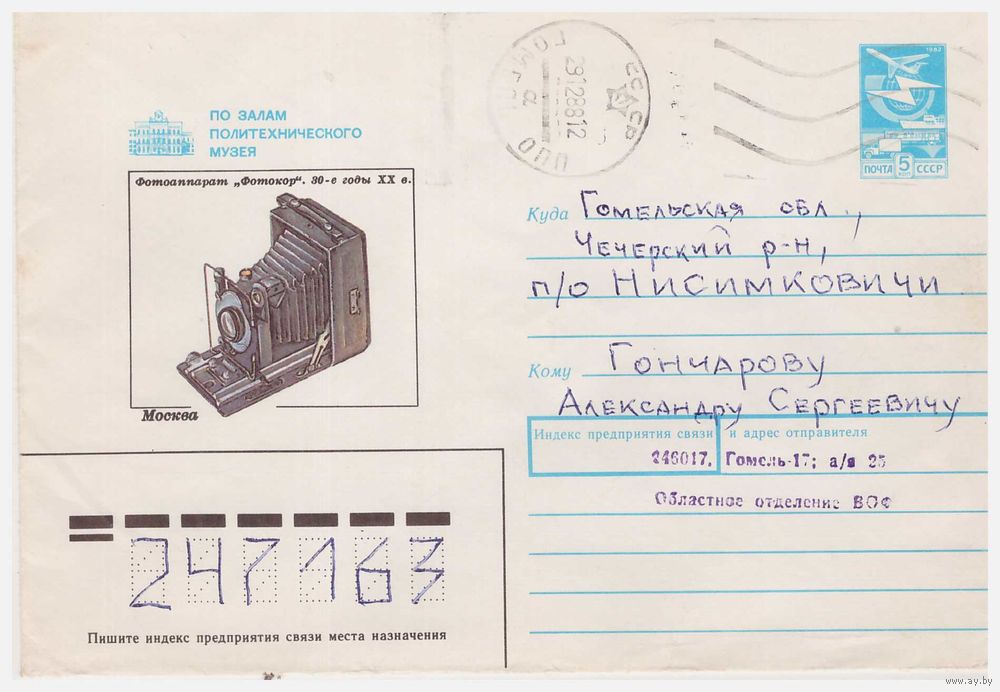 ПО ЗАЛАМ
ПОЛИТЕХНИЧЕСКОГО
МУЗЕЯ
Фотоаппарат „Фотокор". 30-е годы XX в.
Москва
СССР
291288.12
1982
ПОЧТА 5 КОП СССР
Куда Гомельская обл.,
Чечерский р-н,
п/о Нисимковичи
Кому Гончарову
Александру Сергеевичу
Индекс предприятия связи и адрес отправителя
246017, Гомель-17; а/я 25
Областное отделение ВОФ
247163
Пишите индекс предприятия связи места назначения
www.ay.by